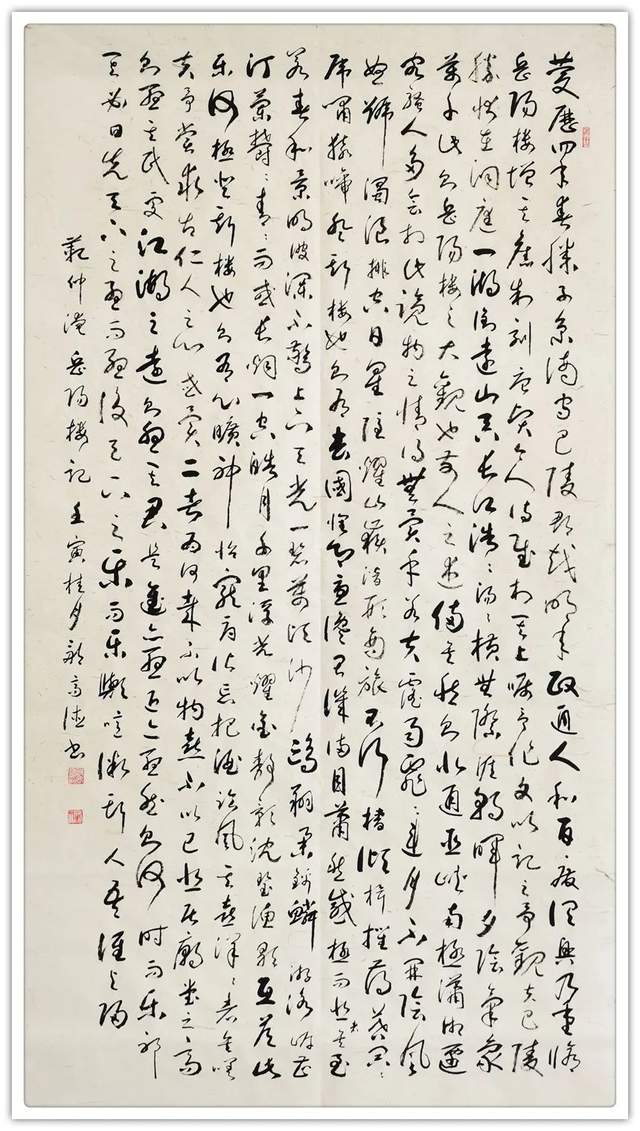 慶曆四年春滕子京謫守巴陵郡越明年政通人和百廢俱興乃重修
岳陽樓增其舊制刻唐賢今人詩賦於其上囑予作文以記之予觀夫巴陵
勝狀在洞庭一湖銜遠山吞長江浩浩湯湯橫無際涯朝暉夕陰氣象
萬千此則岳陽樓之大觀也前人之述備矣然則北通巫峽南極瀟湘遷
客騷人多會於此覽物之情得無異乎若夫霪雨霏霏連月不開陰風
怒號濁浪排空日星隱耀山嶽潛形商旅不行檣傾楫摧薄暮冥冥
虎嘯猿啼登斯樓也則有去國懷鄉憂讒畏譏滿目蕭然感極而悲者矣至
若春和景明波瀾不驚上下天光一碧萬頃沙鷗翔集錦鱗游泳岸芷
汀蘭鬱鬱青青而或長煙一空皓月千里浮光耀金靜影沈璧漁歌互答此
樂何極登斯樓也則有心曠神怡寵辱皆忘把酒臨風其喜洋洋者矣嗟
夫予嘗求古仁人之心或異二者為何哉不以物喜不以己悲居廟堂之高
則憂其民處江湖之遠則憂其君是進亦憂退亦憂然則何時而樂耶
其必曰先天下之憂而憂後天下之樂而樂歟噫微斯人吾誰與歸
范仲淹岳陽樓記壬寅桂月高德書